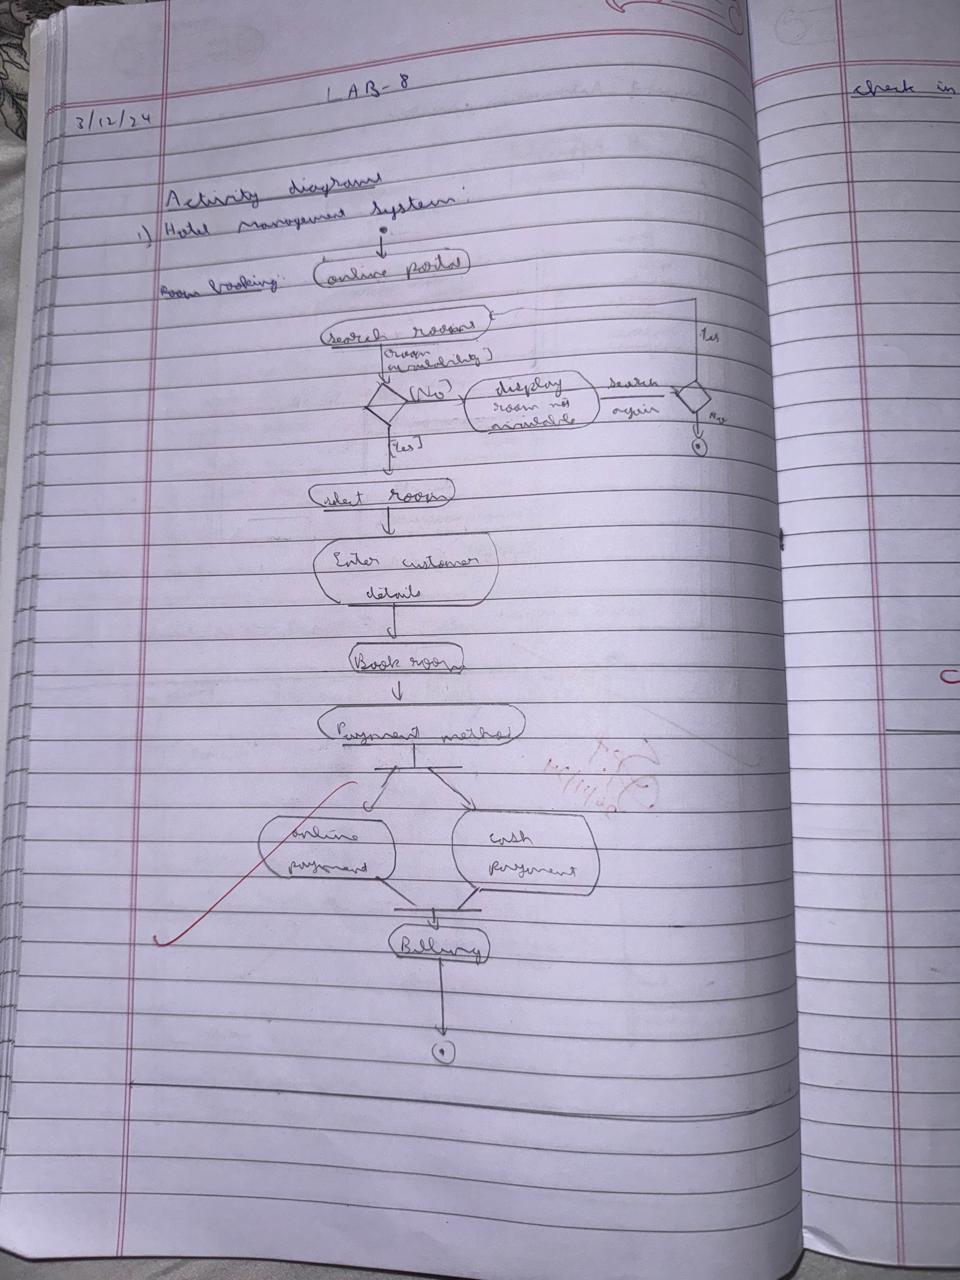 LAB-8
3/12/24
Activity diagrams
1) Hotel management system:
Room booking:
online portal
search rooms
[room
availability]
[No]
display
room not
available
search
again
Yes
No
[Yes]
select room
Enter customer
details
Book room
Payment method
online
payment
cash
payment
Billing
check in